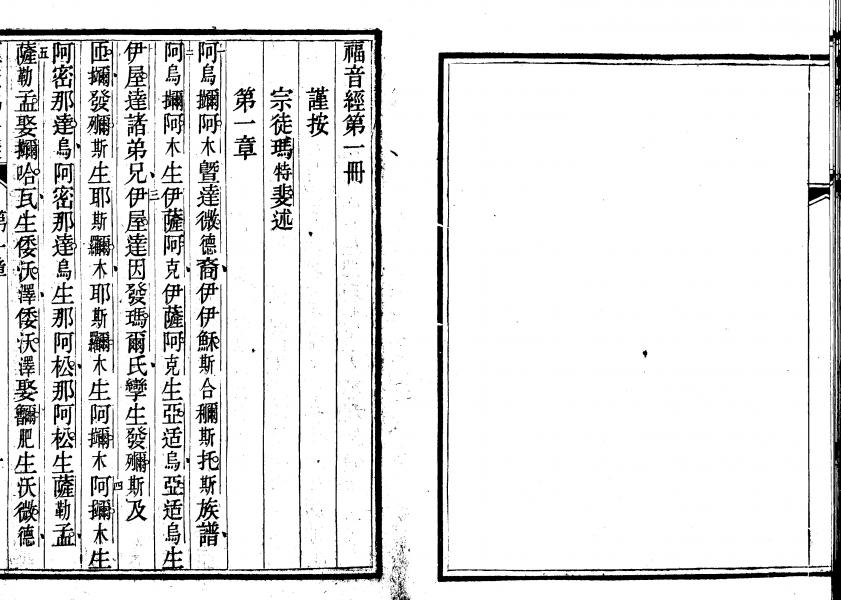 福音經第一冊
謹按
宗徒瑪特斐述
第一章
一阿烏擸阿木曁達微德裔伊伊穌斯合穪斯托斯族譜
二阿烏擸阿木生伊薩阿克伊薩阿克生亞适烏亞适烏生
伊屋達諸弟兄三伊屋達因發瑪爾氏孿生發殢斯及
匝擸發殢斯生耶斯羅木耶斯羅木生阿擸木四阿擸木生
阿密那達烏阿密那達烏生那阿松那阿松生薩勒孟
五薩勒孟娶擸哈瓦生倭沃澤倭沃澤娶肥生沃微德
第一章